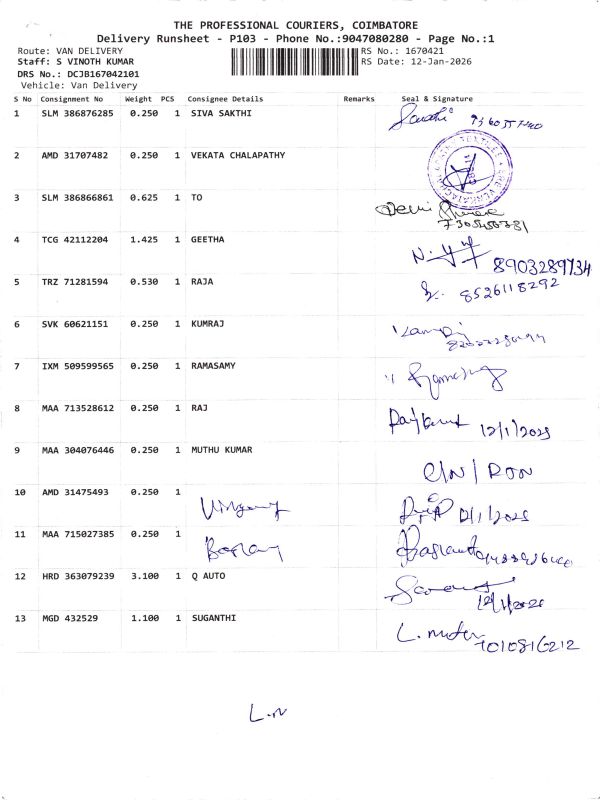 THE PROFESSIONAL COURIERS, COIMBATORE
Delivery Runsheet - P103 - Phone No.:9047080280 - Page No.:1
Route: VAN DELIVERY RS No.: 1670421
Staff: S VINOTH KUMAR RS Date: 12-Jan-2026
DRS No.: DCJB167042101
Vehicle: Van Delivery
S No Consignment No Weight PCS Consignee Details Remarks Seal & Signature
1 SLM 386876285 0.250 1 SIVA SAKTHI
2 AMD 31707482 0.250 1 VEKATA CHALAPATHY
3 SLM 386866861 0.625 1 TO
4 TCG 42112204 1.425 1 GEETHA
8903289734
5 TRZ 71281594 0.530 1 RAJA
8526118292
6 SVK 60621151 0.250 1 KUMRAJ
7 IXM 509599565 0.250 1 RAMASAMY
8 MAA 713528612 0.250 1 RAJ
12/1/2025
9 MAA 304076446 0.250 1 MUTHU KUMAR
10 AMD 31475493 0.250 1
11 MAA 715027385 0.250 1
12 HRD 363079239 3.100 1 Q AUTO
13 MGD 432529 1.100 1 SUGANTHI
L.